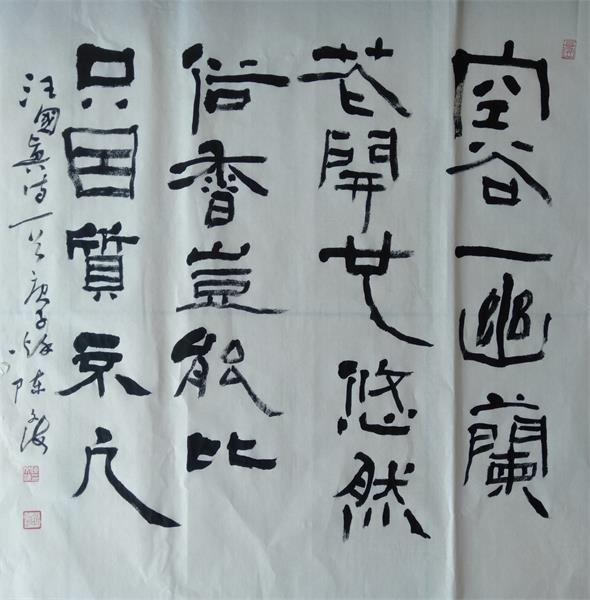 空谷一幽蘭
花開也悠然
俗香豈能比
只因質不凡
汪國真詩一首庚子秋陈